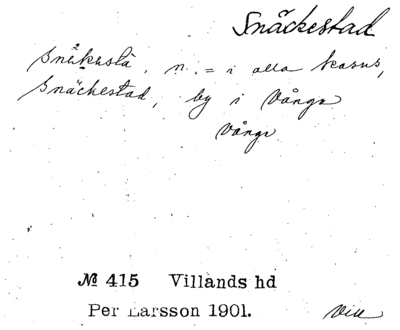 Snäckestad
snäkasta, n. = i alla kasus,
Snäckestad, by i Vånga
Vånga
№ 415 Villands hd
Per Larsson 1901.
Vill